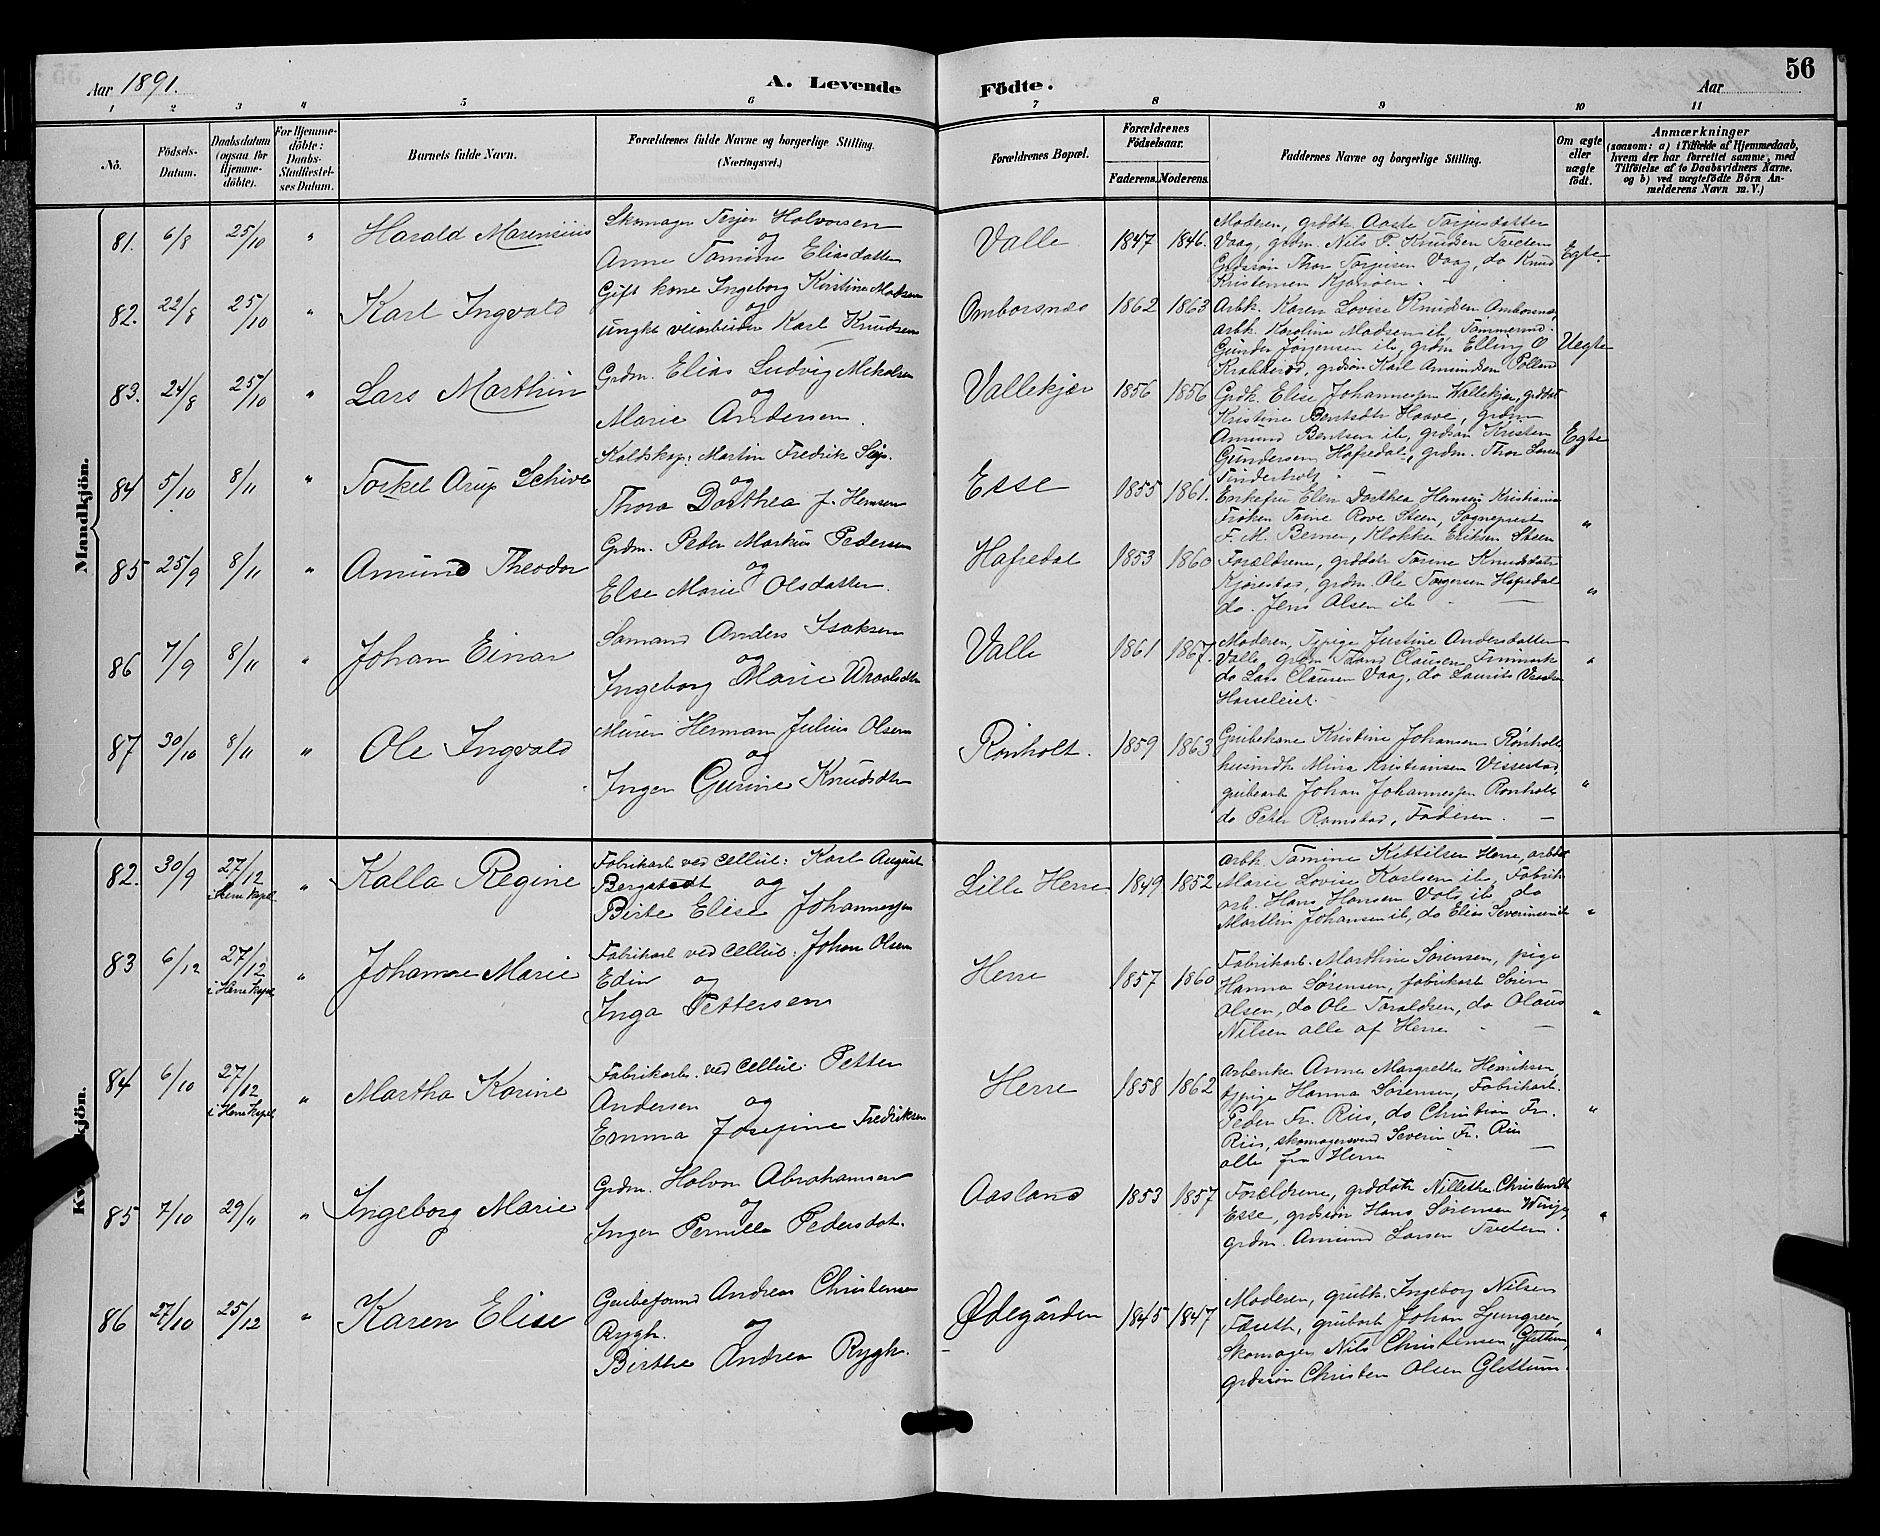 Aar 1891.
A. Levende
Födte.
Aar
56
1 2 3 4 5 6 7 8 9 10 11
No.
Födsels-
Datum.
Daabsdatum
(ogsaa for
Hjemme-
döbte).
For Hjemme-
döbte:
Daabs-
Stadfæstel-
ses Datum.
Barnets fulde Navn.
Forældrenes fulde Navne og borgerlige Stilling.
(Næringsvei.)
Forældrenes Bopæl.
Forældrenes
Födselsaar.
Faderens.
Moderens.
Faddernes Navne og borgerlige Stilling.
Om ægte
eller
uægte
født.
Anmærkninger
(saasom: a) i Tilfælde af Hjemmedaab,
hvem der har forrettet samme, med
Tilföielse af to Daabsvidners Navne.
og b) ved uægtefödte Börn An-
melderens Navn m. V.)
Mandkjön.
81. 6/8 25/10 " Harald Marensius
Skomager Terjer Halvorsen
og
Anne Tomine Eliasdatter
Valle 1847 1846.
Moderen, grddtr Aaste Torjusdatter
Vaag, grdm. Nils P. Knudsen Treten
Grdssön Thor Torjusen Vaag, do Knud
Kristensen
Egte.
82. 22/8 25/10 " Karl Ingvald
Gift kone Ingeborg Kirstine Madsen
og
ungkr veiarbeider Karl Knudsen
Omborsnæs 1862 1863
Arbk. Karen Lovise Knudsen Omborsnæs,
arbk. Karoline Madsen ib,
Gunder Jørgensen ib, grdm Elling O
grdsön Karl Amundsen Pollen
Uegte
83. 24/8 25/10 " Lars Marthin
Grdm. Elias Ludvig Mikalsen
og
Marie Andersen.
Vallekjær 1856 1856
Grdk. Elise Johannesen Vallekjær, grddtr
Kristine Bentsdtr Haave, grdm
Amund Bentsen ib, grdsön Kristen
Gundersen Hafredal, grdm. Thor Larsen
Tinderholt
Egte
84 5/10 8/11 " Torkel Arup Schive
Martin Fredrik
og
Thora Dorthea f. Hemsen
Esse 1855 1861.
Enkefru Elen Dorthea Hemsen Kristiania
Frøken Rove Steen, Sogneprest
F. M. Berner, Klokker Eriksen Steen
"
85 25/9 8/11 " Amund Theodor
Grdm. Peder Markus Pedersen
og
Else Marie Olsdatter.
Hafredal 1853 1860
Forældrene, grddatr Torine Knudsdatr
Kjørestad, grdm. Ole Torgersen Hafredal
do. Jens Olsen ib
"
86 7/9 8/11 " Johan Einar
Sømand Anders Isaksen
og
Ingeborg Marie
Valle 1861 1867.
Moderen, Tjpige Justine Andersdatter
Valle grdm Clausen
do Lars Clausen Vaag, do Laurits
"
87 30/10 8/11 " Ole Ingvald
Murer Herman Julius Olsen
og
Inger Gurine Knudsdtr
Rönholt. 1859 1863
Grubekone Kristine Johansen Rönholt,
Mina Kristiansen Vissestad,
grubearb Johan Johannesen Rönholt
do Peter Ramstad, Faderen.
"
Kv kjön.
82. 30/9 27/12 i Herre Kapel " Kalla Regine
Fabrikarb ved Cellul: Karl August
Bergstadt og
Birte Elise Johannesen
Lille Herre 1849 1852
Arbk. Tomine Kittilsen Herre, arbddtr
Marie Lovise Karlsen ib, Fabrik
arb. Hans Hansen Vold ib, do
Marthin Johansen ib, do Elias Severinsen ib
"
83 6/12 27/12 i Herre Kapel " Johanne Marie
Fabrikarb ved Cellul: Johan Olsen
Edin og
Inga Pettersen
Herre 1857 1860
Fabrikarb. Marthine Sörensen, pige
Hanna Sörensen, fabrikarb Sören
Olsen, do Ole Toraldsen, do Olaus
Nilsen alle af Herre
"
84 6/10 27/12 i Herre Kapel " Martha Karine
Fabrikarb. ved Cellul. Petter
Andersen og
Emma Josefine Fredriksen
Herre 1858 1862
Arbenke Anne Margrethe Henriksen,
tjpige Hanna Sörensen, Fabrikarb.
Peder Fr. Riis, do Christian Fr.
Riis, skomagersvend Severin Fr. Riis
alle fra Herre
"
85 7/10 29/11 " Ingeborg Marie
Grdm. Halvor Abrahamsen
og
Inger Pernille Pedersdat.
Aasland 1853 1857
Forældrene, grddatr Nillethe Christensdtr
Esse, grdssön Hans Sörensen
grdm. Amund Larsen Treten.
"
86 27/10 25/12 " Karen Elise
Grubeformd Andreas Christensen
Rygh. og
Birthe Andrea Rygh.
Ødegården 1845 1847
Moderen, grubk. Ingeborg Nilsen
grubarb Johan Ljungreen,
Skomager Nils Christensen Glittum,
grdssön Christen Olsen Glittum.
"